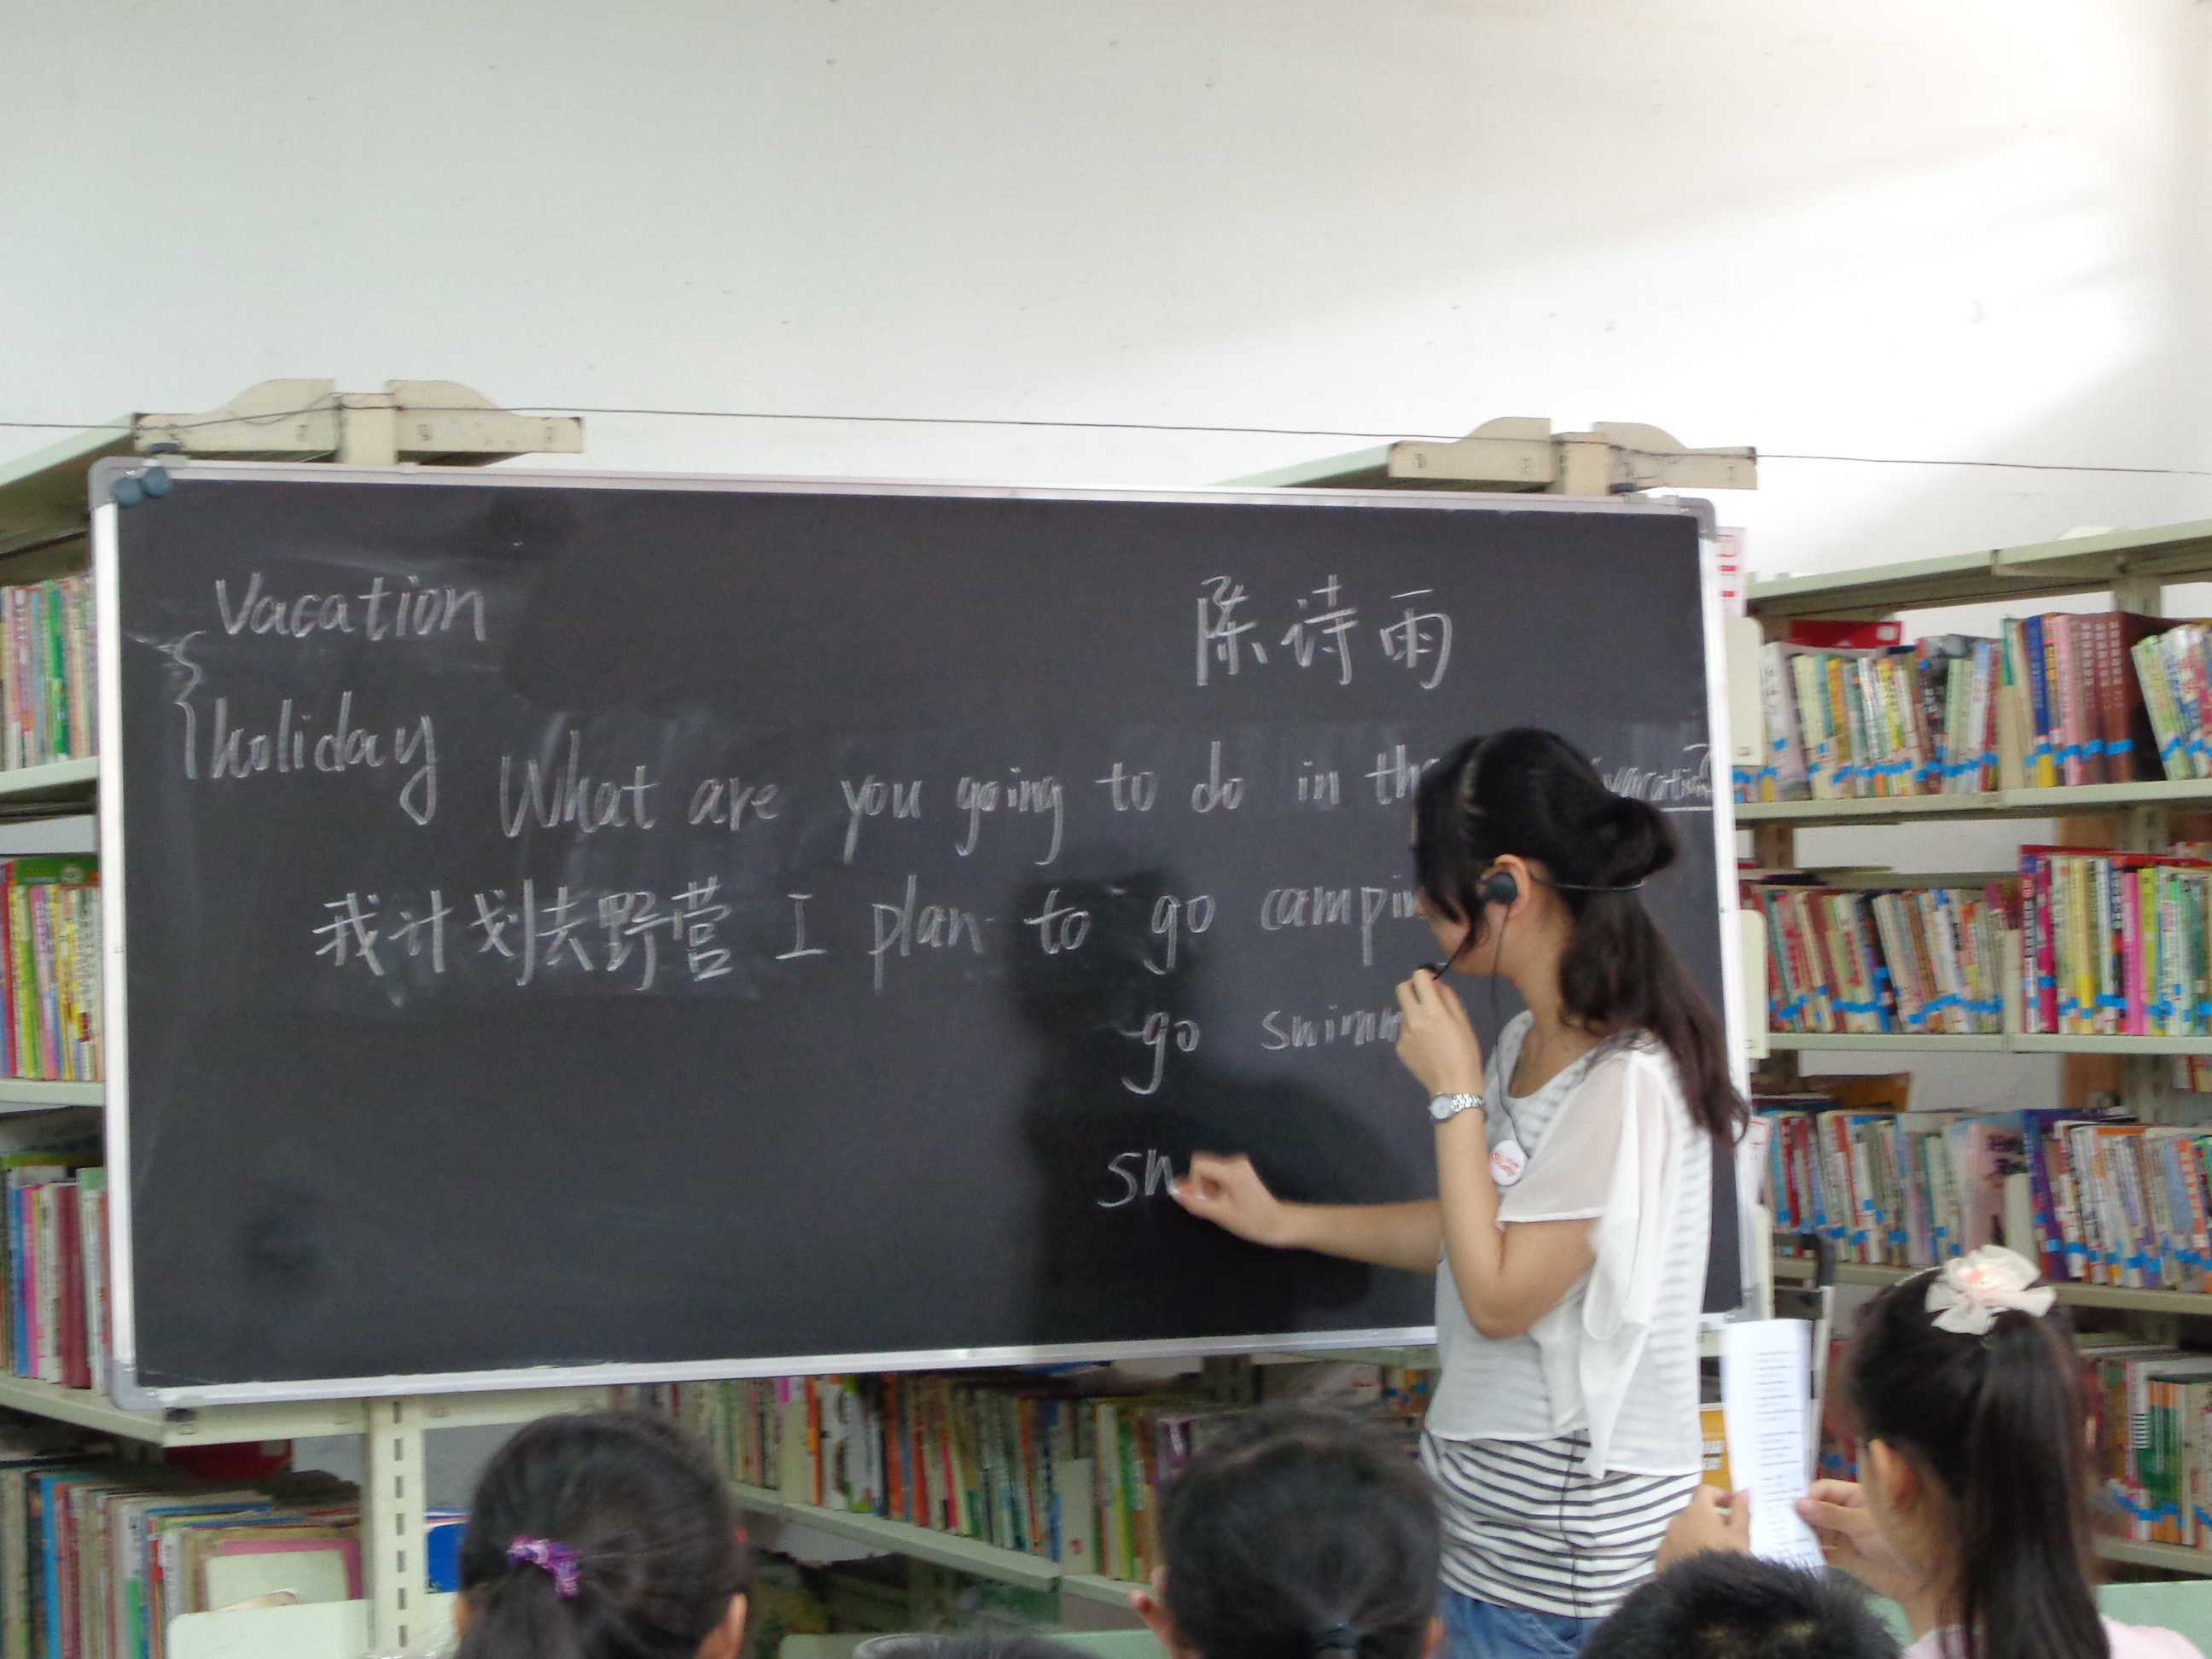 vacation
陈诗雨
holiday
What are you going to do in the vacation?
我计划去野营 I plan to go campin
go swimm
sw